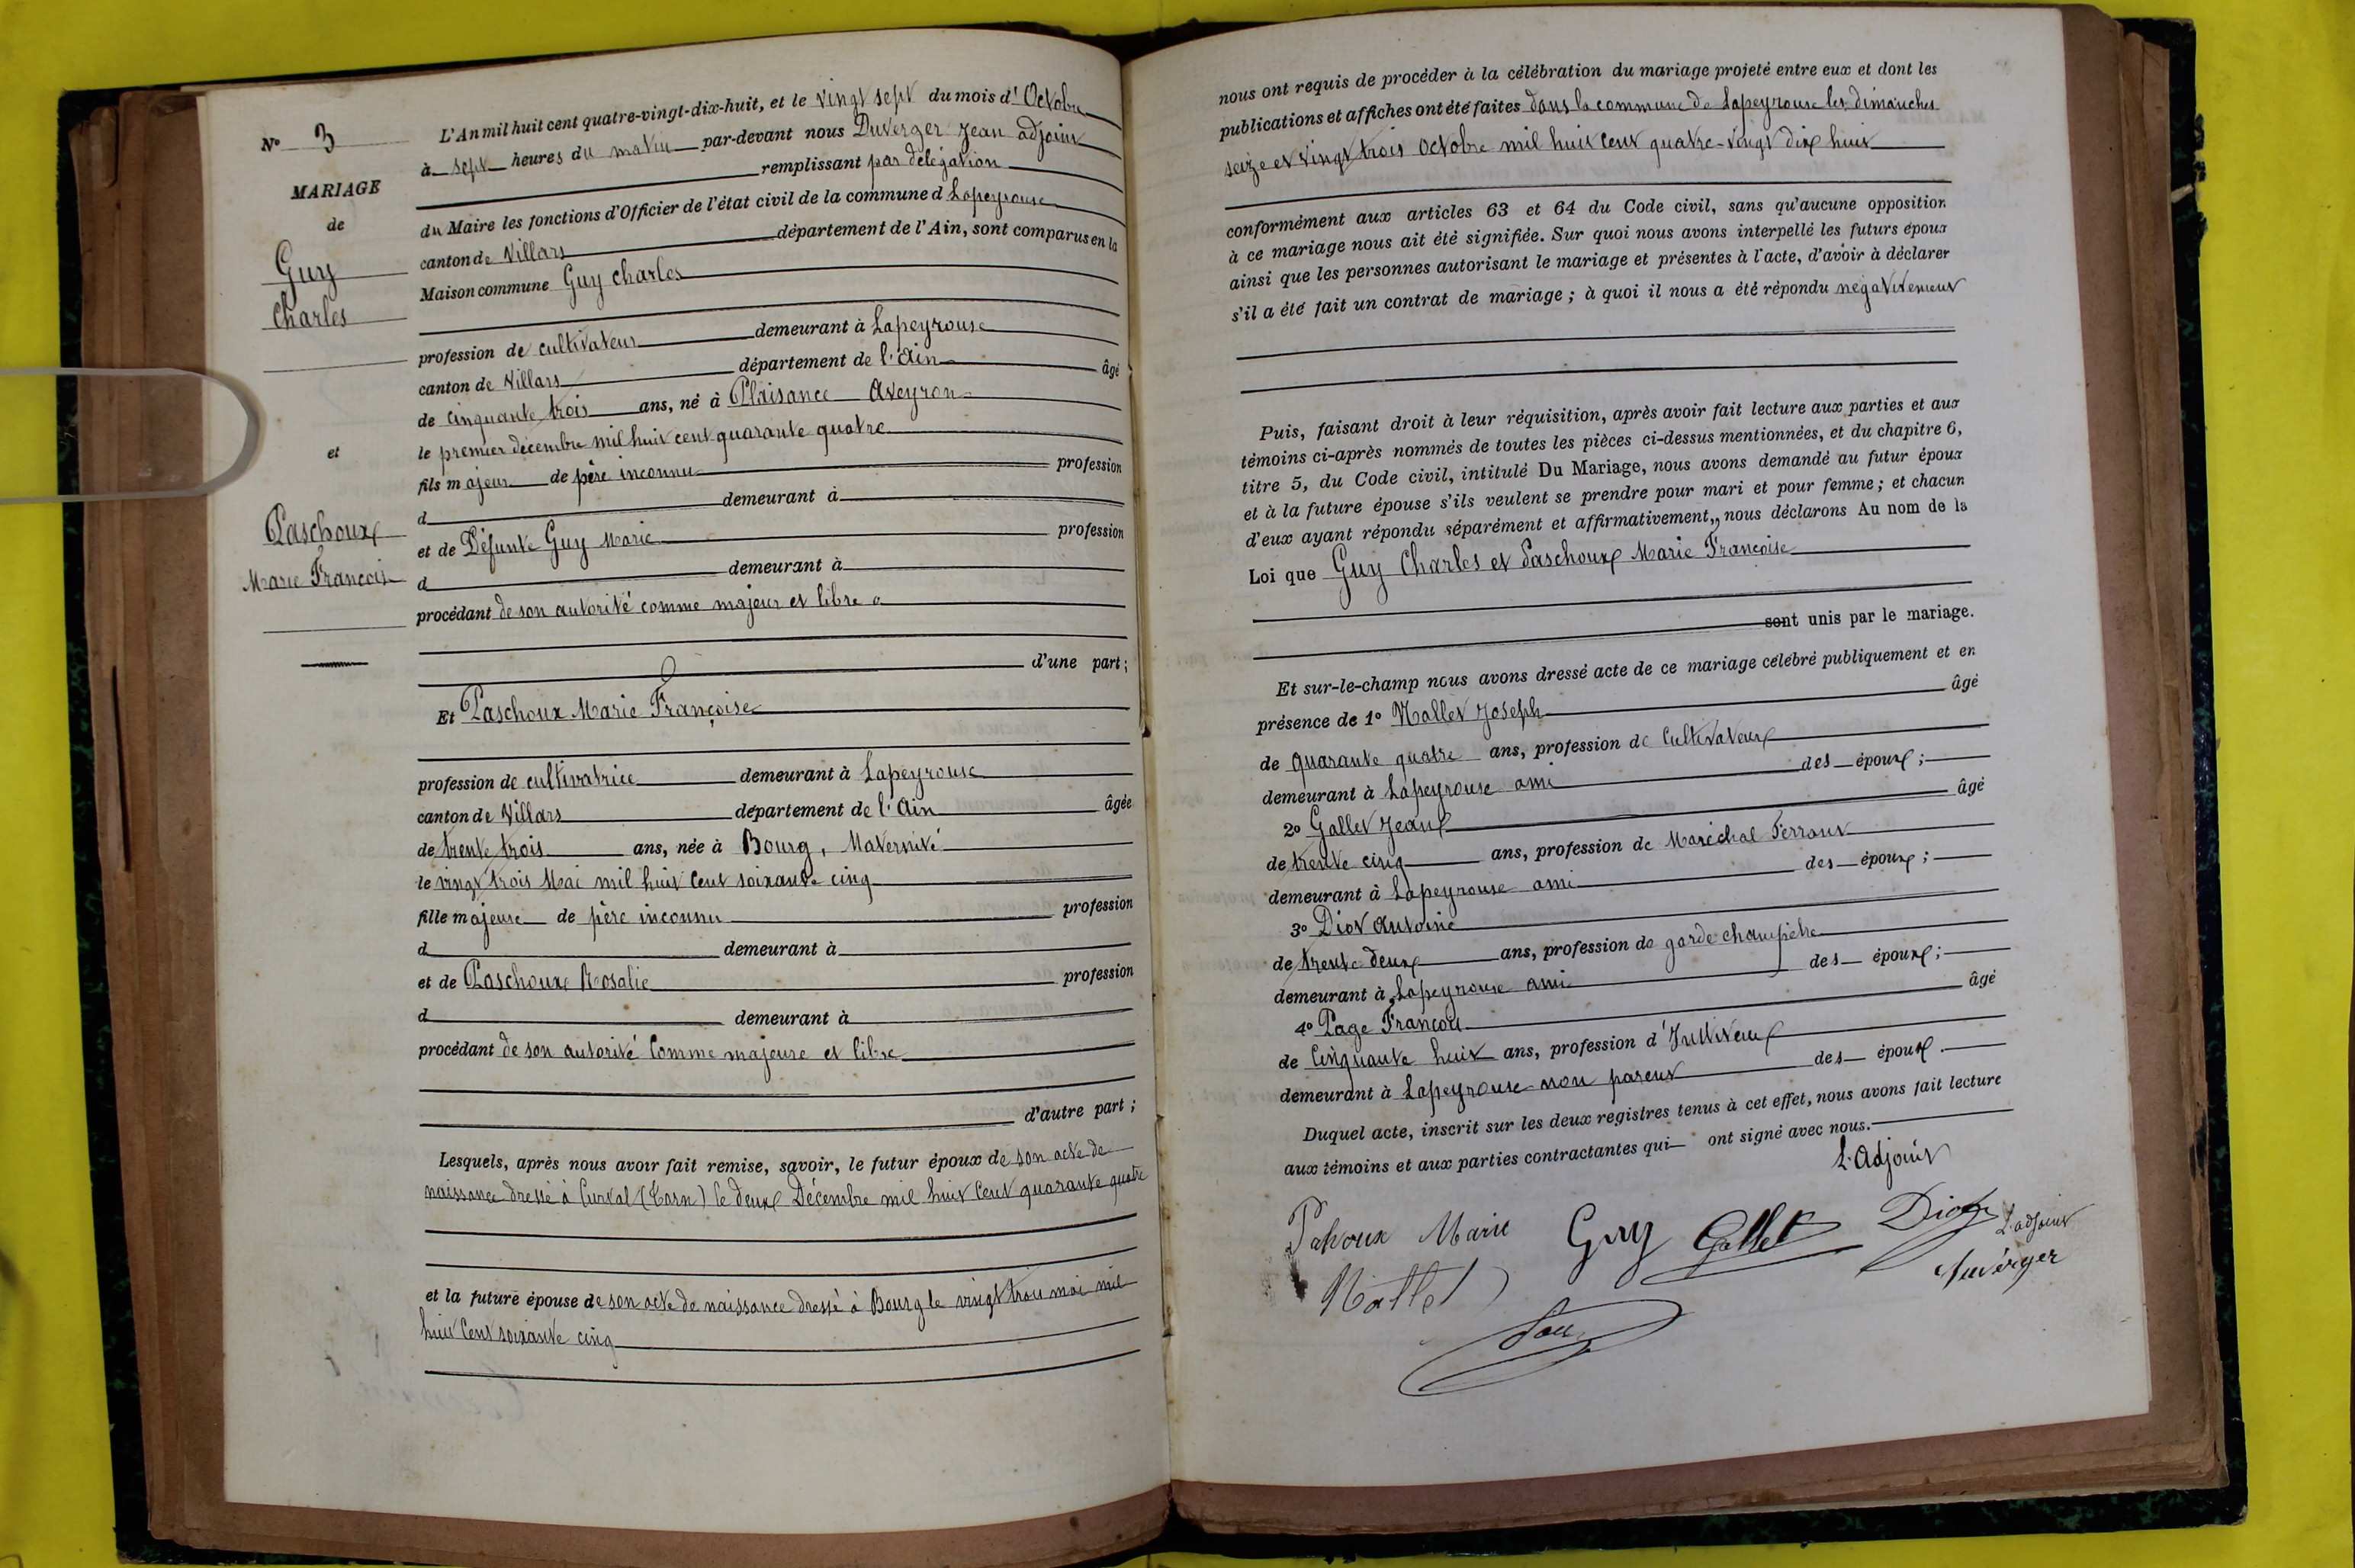 N° 3
MARIAGE
de
Guy
Charles
et
Paschoux
Marie Françoise
L'An mil huit cent quatre-vingt-dix-huit, et le vingt sept du mois d'Octobre
à sept heures du matin par-devant nous Duverger Jean adjoint
remplissant par délégation
du Maire les fonctions d'Officier de l'état civil de la commune d Lapeyrouse
canton de Villars département de l'Ain, sont comparus en la
Maison commune Guy Charles
profession de cultivateur demeurant à Lapeyrouse
canton de Villars département de l'Ain âgé
de cinquante trois ans, né à Plaisance Aveyron
le premier décembre mil huit cent quarante quatre
fils majeur de père inconnu profession
d demeurant à
et de Défunte Guy Marie profession
d demeurant à
procédant de son autorité comme majeur et libre
d'une part;
Et Paschoux Marie Françoise
profession de cultivatrice demeurant à Lapeyrouse
canton de Villars département de l'Ain âgée
de trente trois ans, née à Bourg, Maternité
le vingt trois Mai mil huit cent soixante cinq
fille majeure de père inconnu profession
d demeurant à
et de Paschoux Rosalie profession
d demeurant à
procédant de son autorité comme majeure et libre
d'autre part;
Lesquels, après nous avoir fait remise, savoir, le futur époux de son acte de
naissance dressé à Curval (Tarn) le deux Décembre mil huit cent quarante quatre
et la future épouse de son acte de naissance dressé à Bourg le vingt trois mai mil
huit cent soixante cinq
nous ont requis de procéder à la célébration du mariage projeté entre eux et dont les
publications et affiches ont été faites dans la commune de Lapeyrouse les dimanches
seize et vingt trois Octobre mil huit cent quatre-vingt dix huit
conformément aux articles 63 et 64 du Code civil, sans qu'aucune opposition
à ce mariage nous ait été signifiée. Sur quoi nous avons interpellé les futurs époux
ainsi que les personnes autorisant le mariage et présentes à l'acte, d'avoir à déclarer
s'il a été fait un contrat de mariage; à quoi il nous a été répondu négativement
Puis, faisant droit à leur réquisition, après avoir fait lecture aux parties et aux
témoins ci-après nommés de toutes les pièces ci-dessus mentionnées, et du chapitre 6,
titre 5, du Code civil, intitulé Du Mariage, nous avons demandé au futur époux
et à la future épouse s'ils veulent se prendre pour mari et pour femme; et chacun
d'eux ayant répondu séparément et affirmativement,, nous déclarons Au nom de la
Loi que Guy Charles et Paschoux Marie Françoise
sont unis par le mariage.
Et sur-le-champ nous avons dressé acte de ce mariage célébré publiquement et en
présence de 1° Mallet Joseph âgé
de quarante quatre ans, profession de Cultivateur
demeurant à Lapeyrouse ami des époux;
2° Gallet Jean âgé
de trente cinq ans, profession de Maréchal Ferrant
demeurant à Lapeyrouse ami des époux;
3° Diot Antoine
de trente deux ans, profession de garde champêtre
demeurant à Lapeyrouse ami des époux;
4° Page François âgé
de Cinquante huit ans, profession d'Instituteur
demeurant à Lapeyrouse non parent des époux.
Duquel acte, inscrit sur les deux registres tenus à cet effet, nous avons fait lecture
aux témoins et aux parties contractantes qui ont signé avec nous.
L'Adjoint
Pahoux Marie Guy Gallet Diot L'adjoint
Mallet Duverger